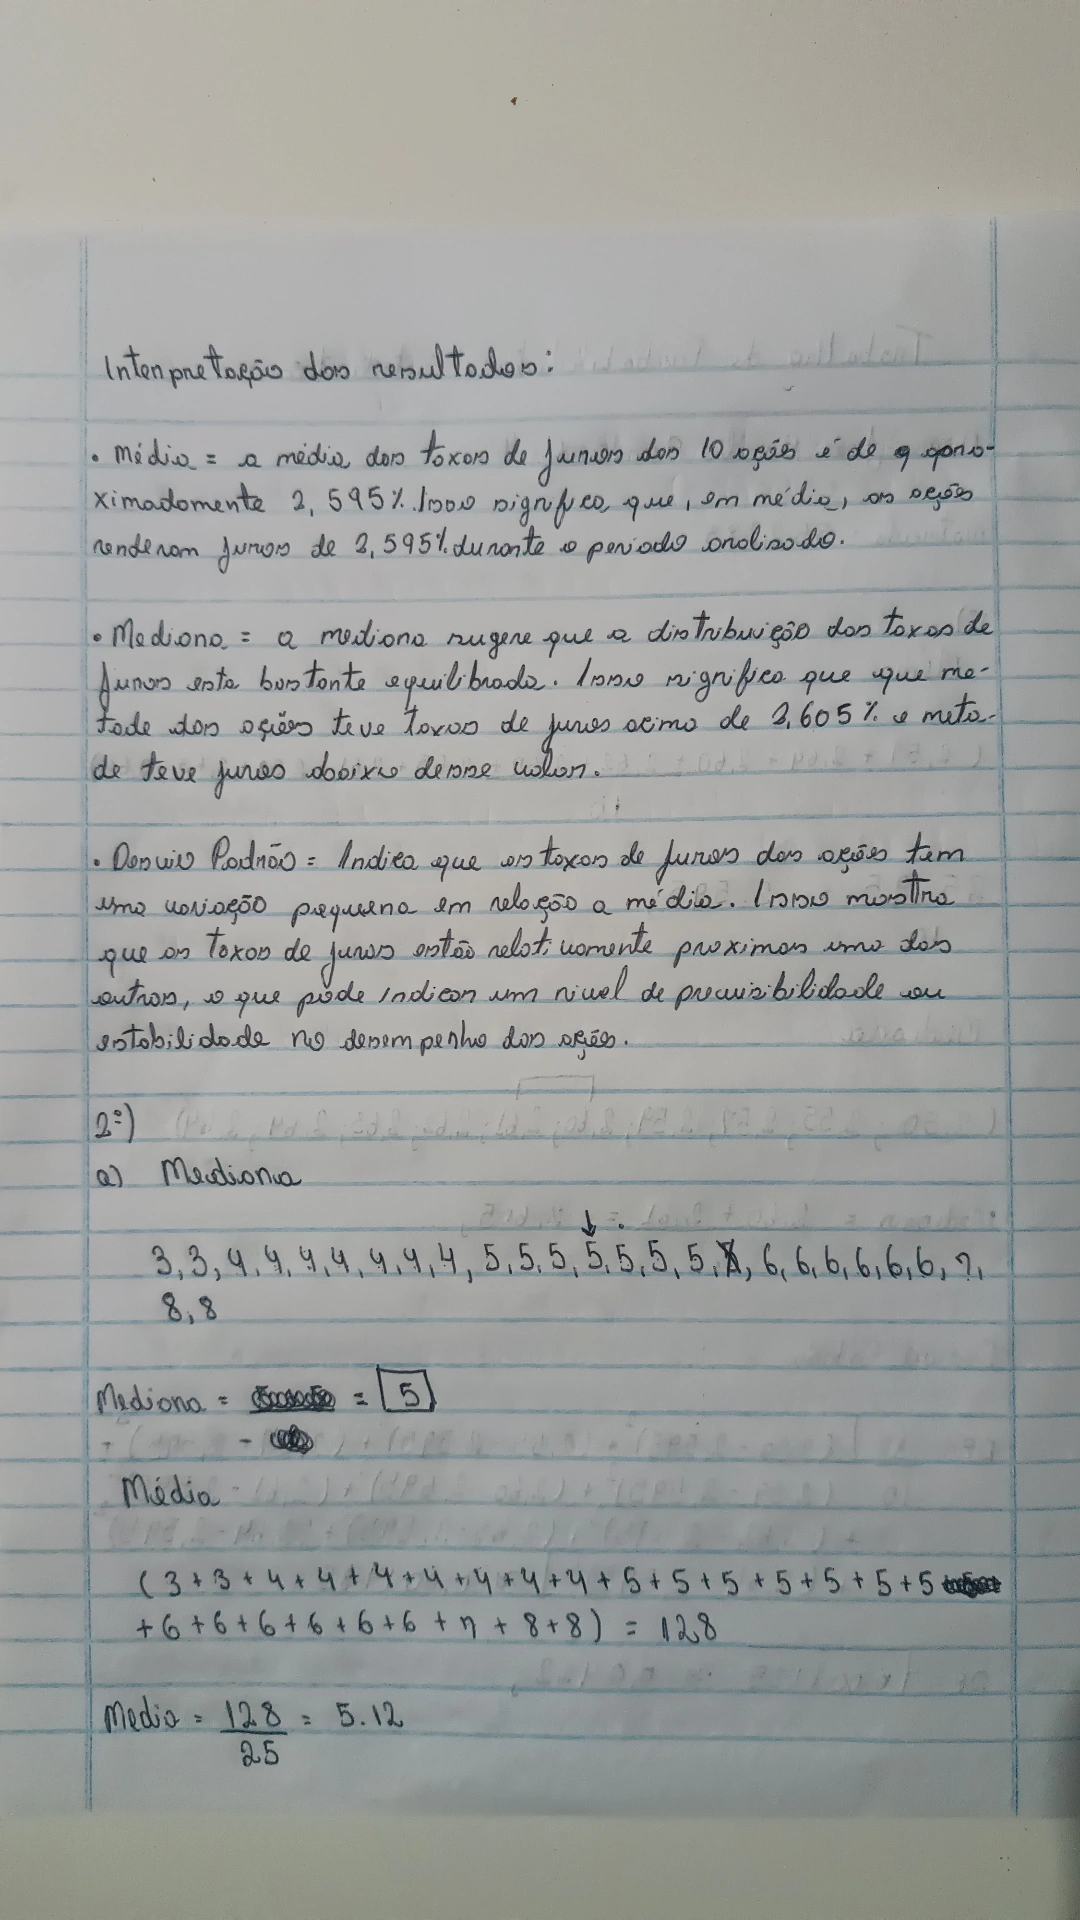 Interpretação dos resultados:
• Média = a média das taxas de juros das 10 ações é de apro-
ximadamente 2,595%. Isso significa que, em média, as ações
renderam juros de 2,595% durante o periodo analisado.
• Mediana = a mediana sugere que a distribuição das taxas de
juros esta bastante equilibrada. Isso significa que que me-
tade das ações teve taxas de juros acima de 2,605% e meta-
de teve juros abaixo desse valor.
• Desvio Padrão = Indica que as taxas de juros das ações tem
uma variação pequena em relação a média. Isso mostra
que as taxas de juros estão relativamente proximas uma das
outras, o que pode indicar um nivel de previsibilidade ou
estabilidade no desempenho das ações.
2º)
a) Mediana
3, 3, 4, 4, 4, 4, 4, 4, 4, 5, 5, 5, 5, 5, 5, 5, 6, 6, 6, 6, 6, 6, 7,
8, 8
Mediana = = 5
Média
(3+3+4+4+4+4+4+4+4+5+5+5+5+5+5+5
+6+6+6+6+6+6+7+8+8) = 128
Media = 128 = 5.12
25